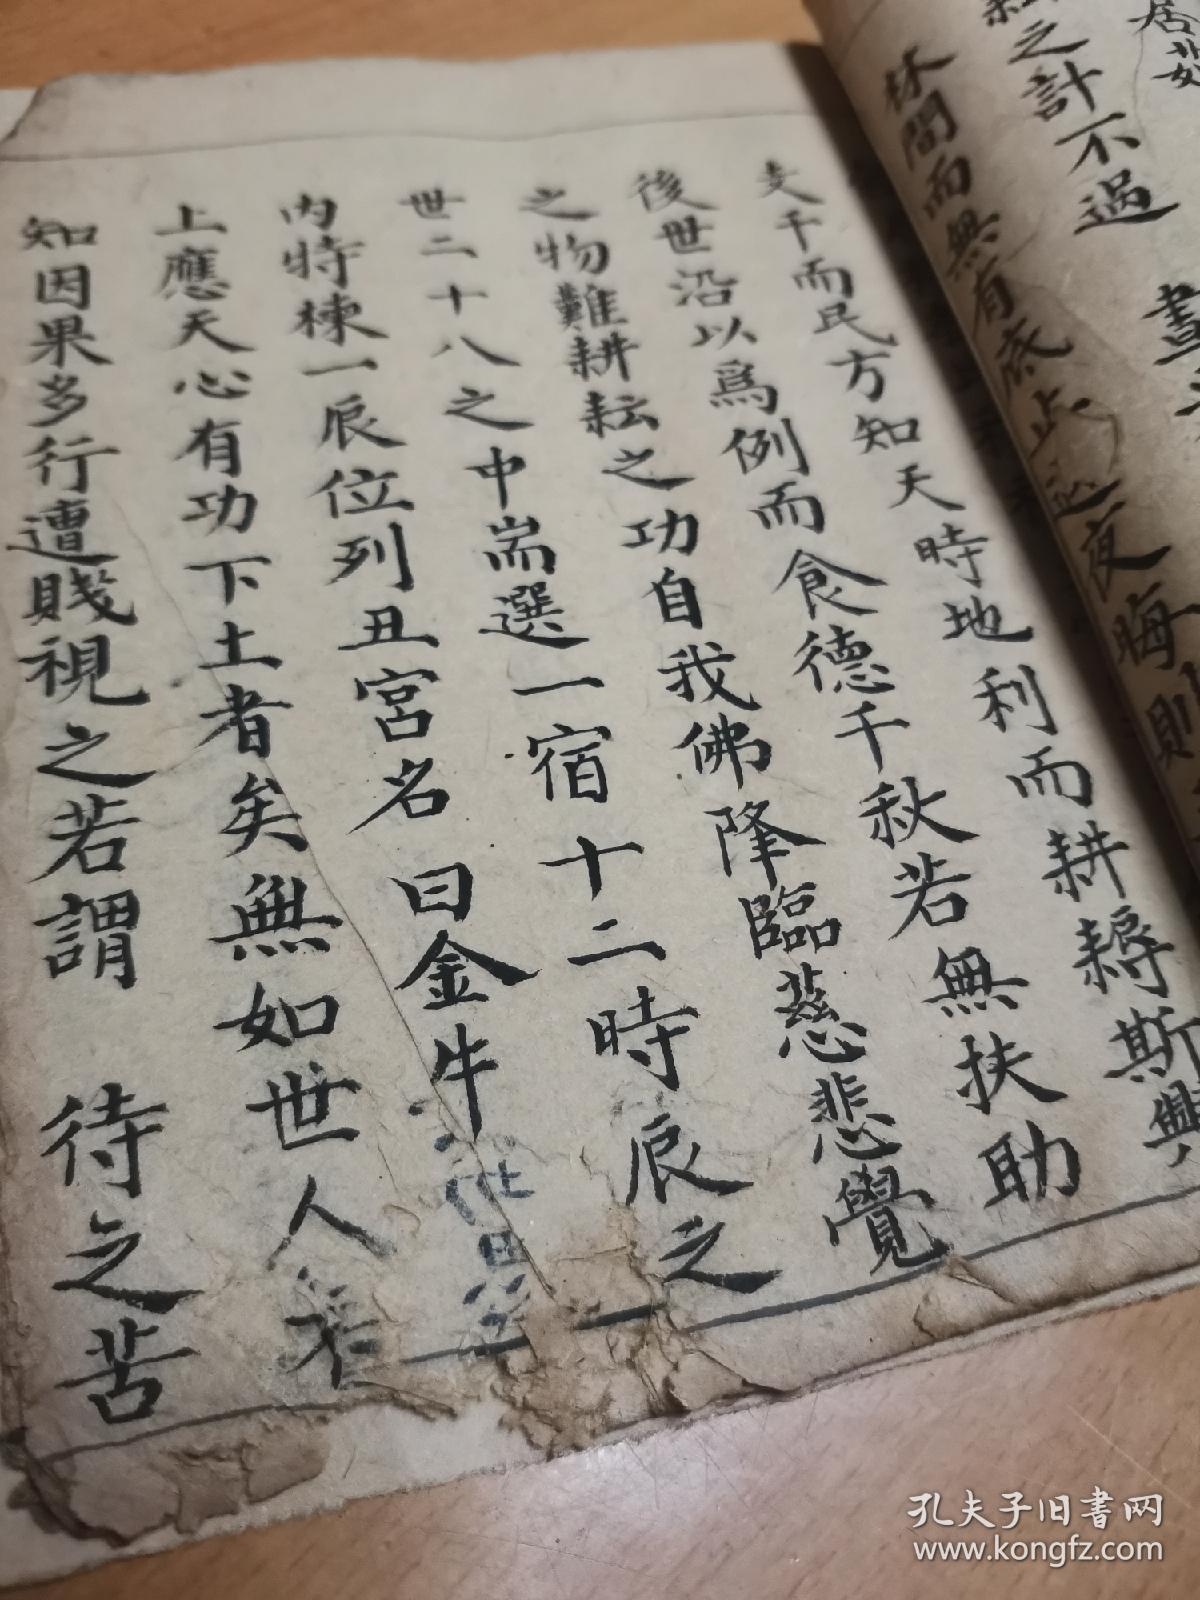 居
之計不過
晝
休間而無有底止
夜晦則
支干而民方知天時地利而耕耨斯興
後世沿以爲例而食德千秋若無扶助
之物難耕耘之功自我佛降臨慈悲覺
世二十八之中耑選一宿十二時辰之
內特棟一辰位列丑宮名曰金牛
上應天心有功下土者矣無如世人不
知因果多行遭賤視之若謂 待之苦
孔夫子旧书网
www.kongfz.com